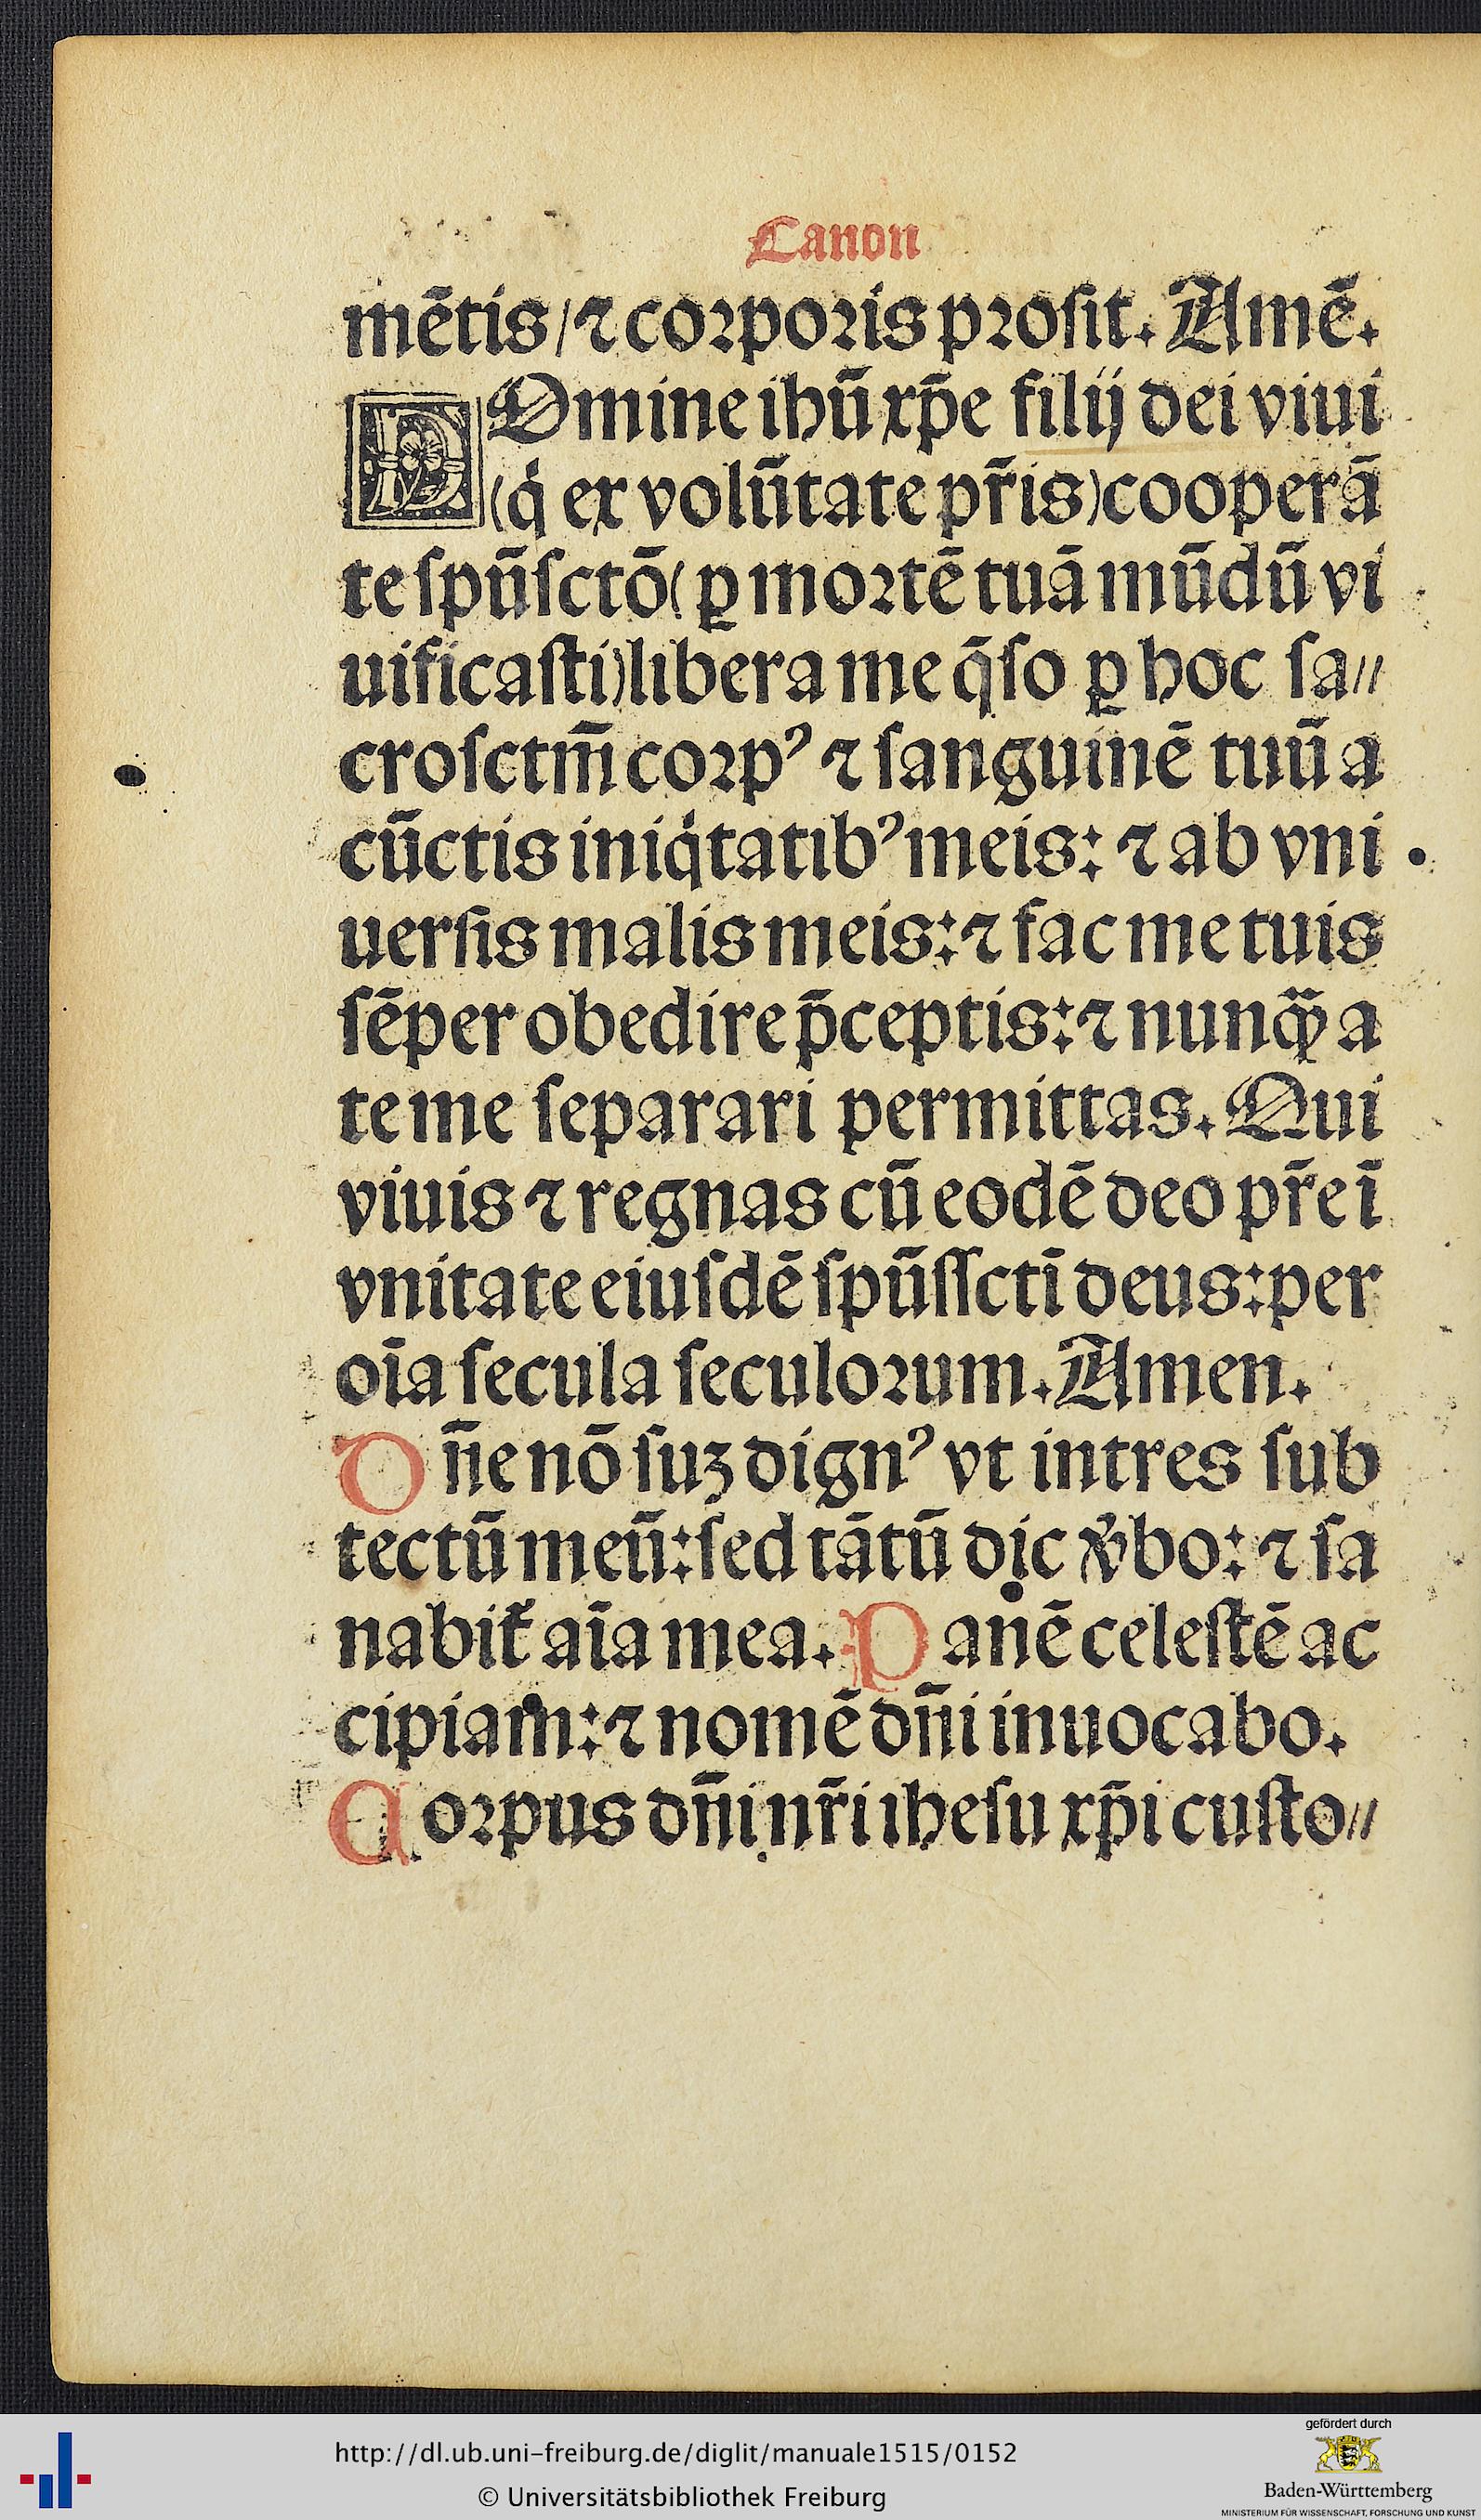 Canon
mētis/ ⁊ corporis proſit. Amē.
DOmine ihū xp̄e filij dei viui
(q̇ ex volūtate pr̄is) cooperā
te ſpūſctō (ꝑ mortē tuā mūdū vi
uificaſti) libera me q̄ſo ꝑ hoc ſa⸗
croſctm̄ corpꝰ ⁊ ſanguinē tuū a
cūctis iniq̇tatibꝰ meis: ⁊ ab vni
uerſis malis meis: ⁊ fac me tuis
ſēper obedire p̄ceptis: ⁊ nunq̄ȝ a
te me ſeparari permittas. Qui
viuis ⁊ regnas cū eodē deo pr̄e ī
vnitate eiuſdē ſpūſſctī deus: per
oīa ſecula ſeculorum. Amen.
Dn̄e nō ſuꝫ dignꝰ vt intres ſub
tectū meū: ſed tātū dic v̓bo: ⁊ ſa
nabit᷑ aīa mea. Panē celeſtē ac
cipiam: ⁊ nomē dn̄i inuocabo.
Corpus dn̄i nr̄i iheſu xp̄i cuſto⸗
http://dl.ub.uni-freiburg.de/diglit/manuale1515/0152
© Universitätsbibliothek Freiburg
gefördert durch
Baden-Württemberg
MINISTERIUM FÜR WISSENSCHAFT, FORSCHUNG UND KUNST